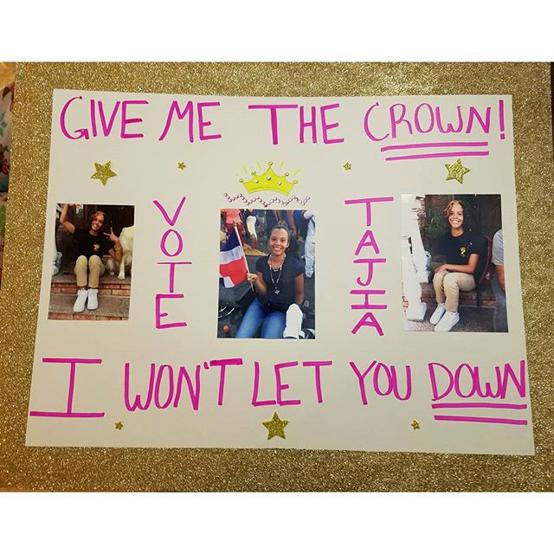 GIVE ME THE CROWN!
VOTE
TAJIA
I WON'T LET YOU DOWN